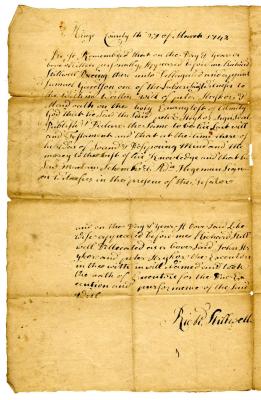 Kings County th 29 of March 1742
Be it Remembered that on the Day & year
above written personally appeared before me Richard
Stillwell Being thereunto Dellegated and appointed
Samuel Garretson one of the Subscribing
to the within written will of peter Strycker &
Maid oath on the holy Evangelist of almity
God that he Saw the Said peter Strycker Sign Seal
Publish & Declare the Same to be his Last will
and Testament and that at the time thereof
he was of Sound & Disposing Mind and Me
mory to the best of his Knowledge and that he
Saw Schenck & Hegeman Sign
as Witnesses in the presence of the Testator
and on the Day & year above Said Like
wise appeared before me Richard Still
well Dellegated as above Said John Stry
ker and peter Strycker the Executors
in the within will Named and took
the oath of Executors for the Due Ex
ecution and performance of the Said
Will
Richd Stillwell